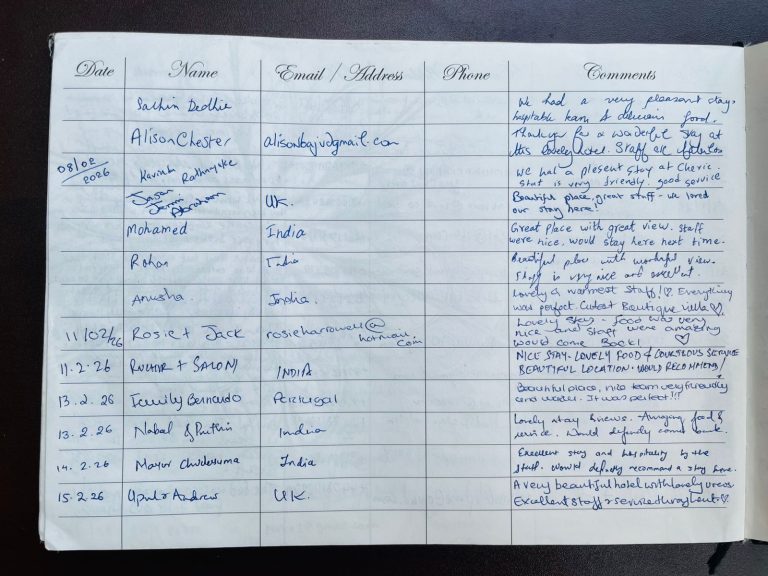 Date Name Email / Address Phone Comments
Sachin Dedhia We had a very pleasant stay.
hospitable team & delicious food.
Alison Chester Thankyou for a wonderful stay at
this lovely hotel. Staff are fabulous
08/02
2026 Rathnayake We had a plesent stay at Cheric.
staf is very friendly. good service
Jason
Jemm
Abraham UK. Beautiful place, great staff - we loved
our stay here!
Mohamed India Great place with great view. Staff
were nice. would stay here next time.
Rohan India Beautiful place with wonderful view.
Staff is very nice and excellent.
Anusha India. Lovely & warmest Staff!♡ Everything
was perfect. Cutest Boutique villa ♡
11/02/26 Rosie + Jack rosieharrowell@
hotmail.com Lovely stay - food was very
nice and staff were amazing
would come back! ♡
11.2.26 RUCHIR + SALONI INDIA NICE STAY - LOVELY FOOD & COURTEOUS SERVICE
BEAUTIFUL LOCATION. WOULD RECOMMEND!
13.2.26 Family Bernardo Portugal Beautiful place, nice team very friendly
and water. It was perfect!!!
13.2.26 Nabal & India Lovely stay & views. Amazing food &
service. Would definitely come back.
14.2.26 Mayur India Excellent stay and hospitality by the
staff. Would definitely recommend a stay here.
15.2.26 Andrew UK. A very beautiful hotel with lovely views
Excellent staff & service throughout ♡